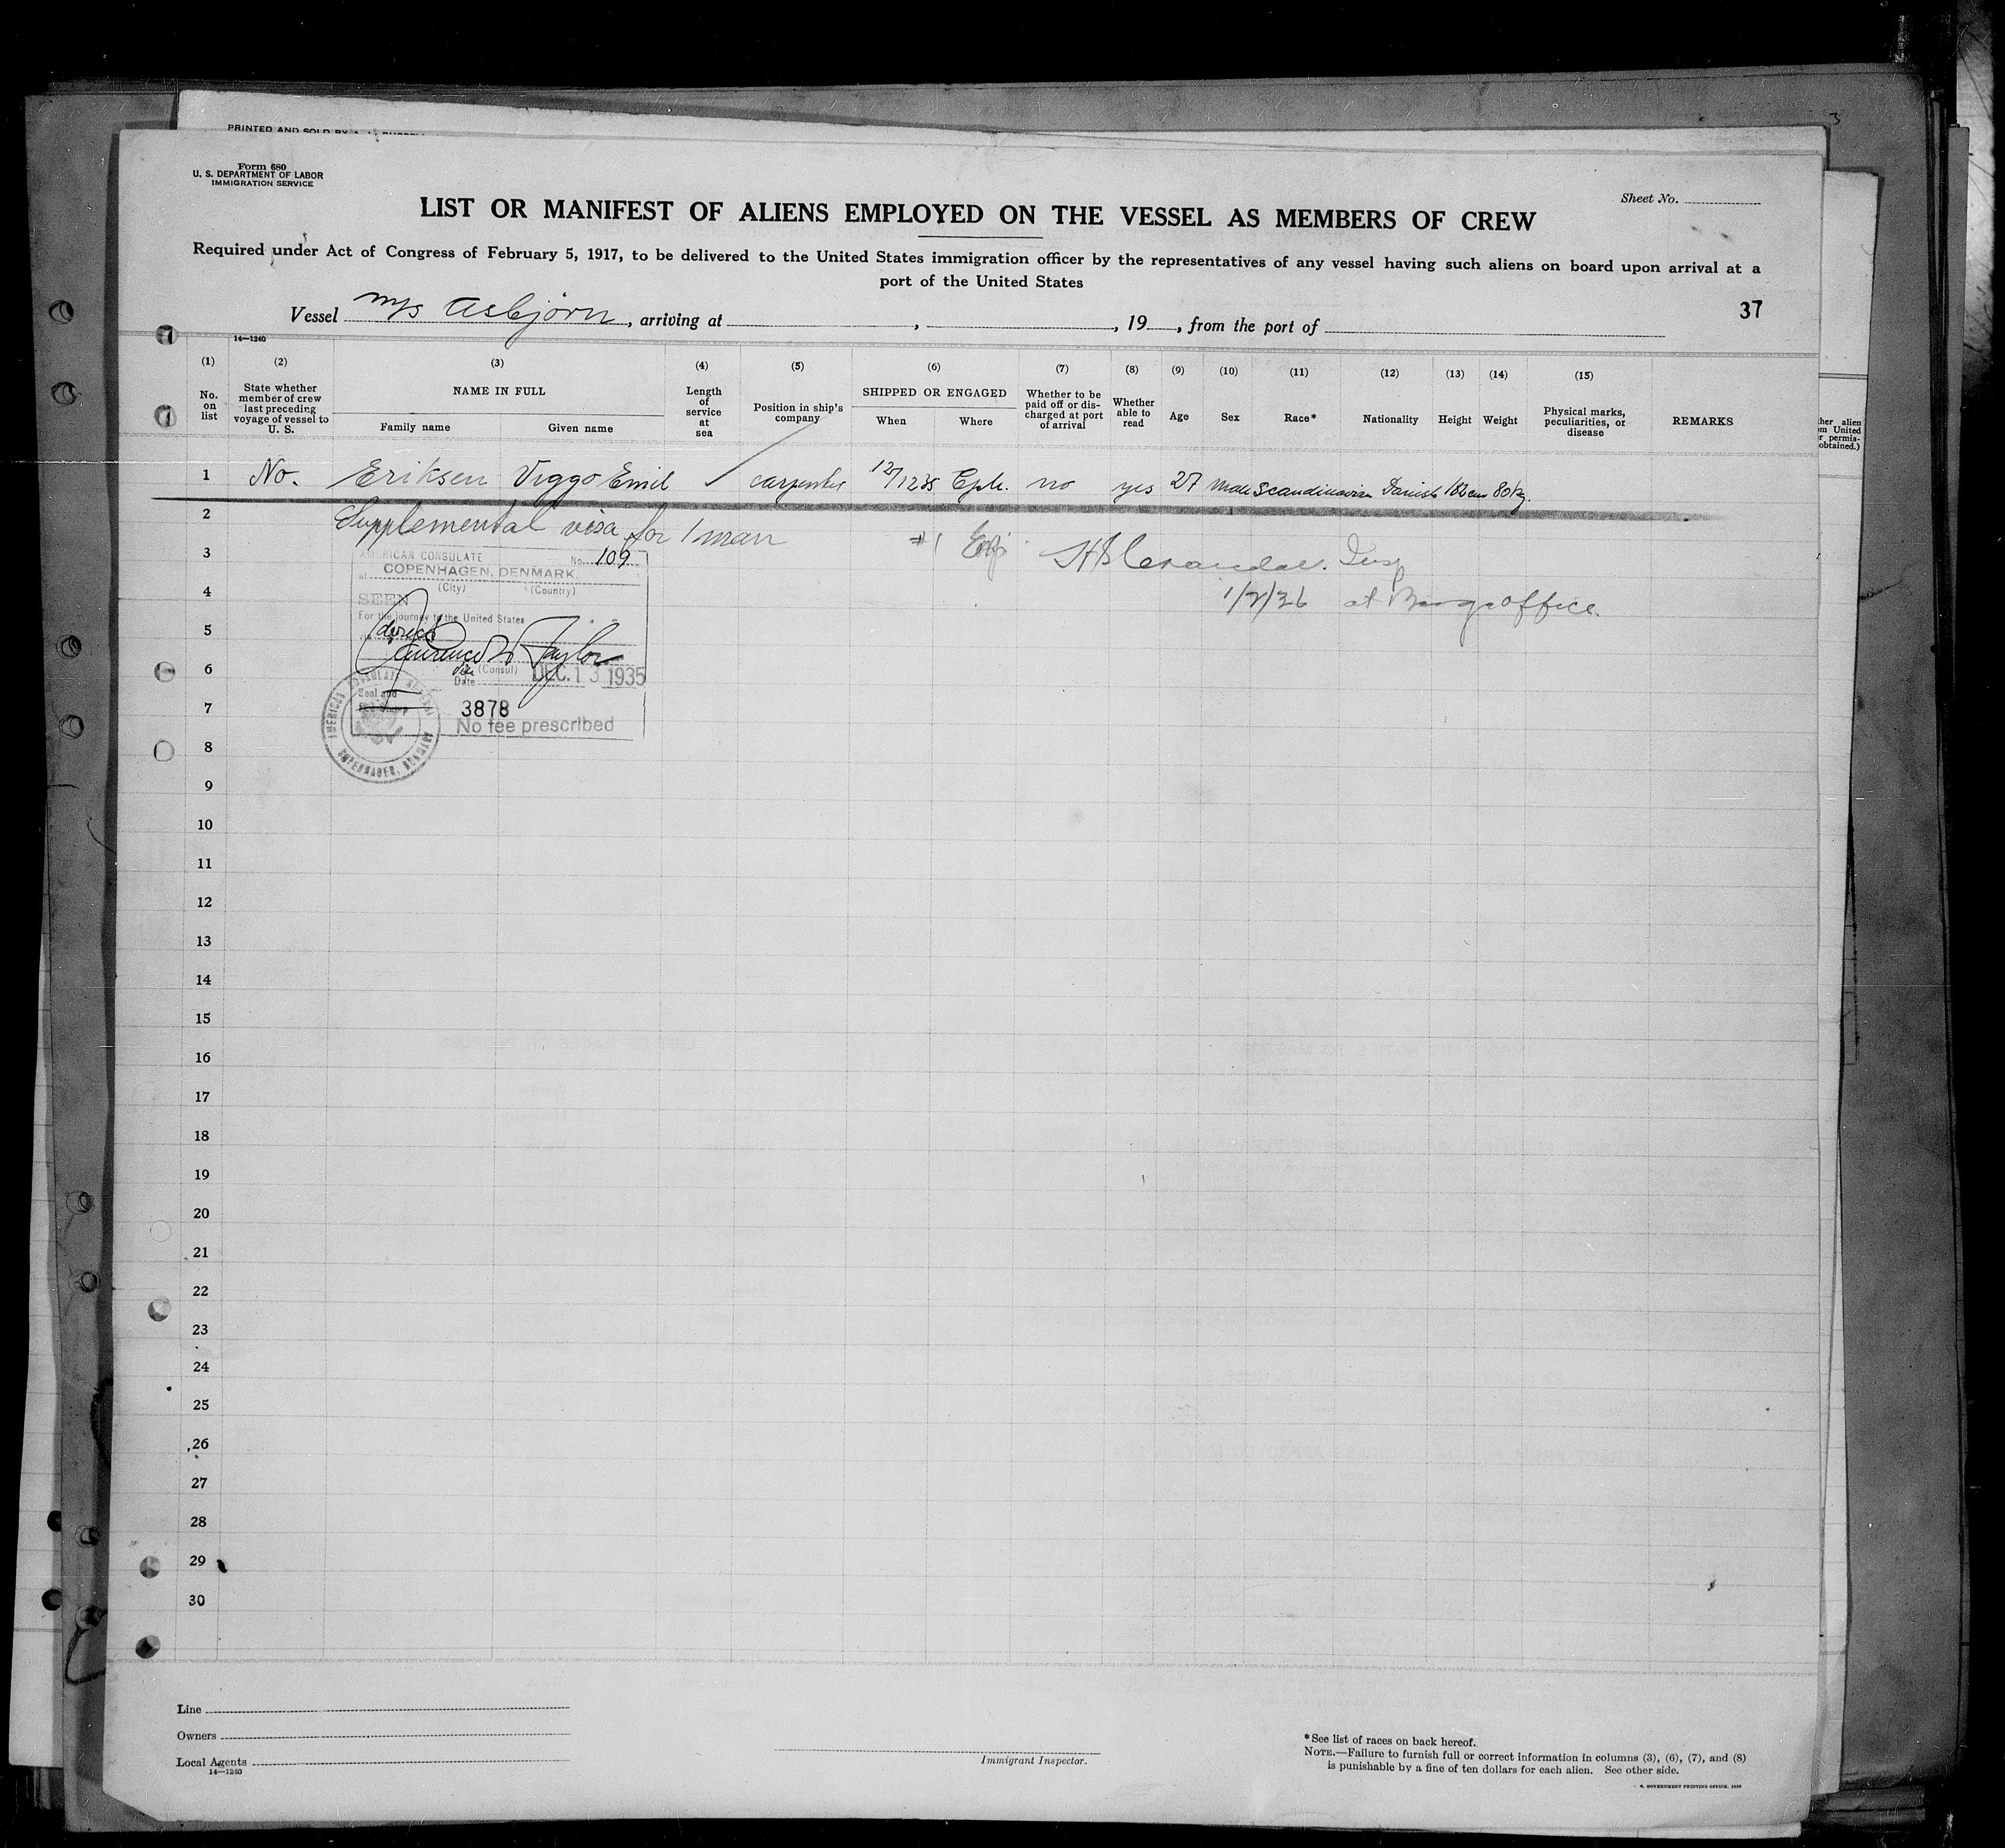 3
PRINTED AND SOLD BY
Form 680
U. S. DEPARTMENT OF LABOR
IMMIGRATION SERVICE
Sheet No.
LIST OR MANIFEST OF ALIENS EMPLOYED ON THE VESSEL AS MEMBERS OF CREW
Required under Act of Congress of February 5, 1917, to be delivered to the United States immigration officer by the representatives of any vessel having such aliens on board upon arrival at a
port of the United States
Vessel M/S Asbjørn, arriving at , , 19 , from the port of
37
14—1240
(1) (2) (3) (4) (5) (6) (7) (8) (9) (10) (11) (12) (13) (14) (15)
No. on list
State whether member of crew last preceding voyage of vessel to U. S.
NAME IN FULL
Family name
Given name
Length of service at sea
Position in ship's company
SHIPPED OR ENGAGED
When
Where
Whether to be paid off or discharged at port of arrival
Whether able to read
Age
Sex
Race*
Nationality
Height
Weight
Physical marks, peculiarities, or disease
REMARKS
ther alien
om United
r permis-
obtained.)
1 No. Eriksen Viggo Emil carpenter 12/12 35 Cph. no yes 27 Male Scandinavian Danish 182 cm 80 kg.
2 Supplemental visa for 1 man
3 #1
AMERICAN CONSULATE No. 109
at COPENHAGEN, DENMARK
(City) (Country)
4 1/2/36 at Barge Office.
SEEN
For the journey to the United States
5 direct
Laurence W Taylor
6 Vice (Consul)
Date DEC. 13 1935
Seal and
7 3878
No fee prescribed
AMERICAN CONSULATE GENERAL
COPENHAGEN, DENMARK
8
9
10
11
12
13
14
15
16
17
18
19
20
21
22
23
24
25
26
27
28
29
30
Line
Owners
Local Agents
14—1240
Immigrant Inspector.
*See list of races on back hereof.
NOTE.—Failure to furnish full or correct information in columns (3), (6), (7), and (8)
is punishable by a fine of ten dollars for each alien. See other side.
GOVERNMENT PRINTING OFFICE